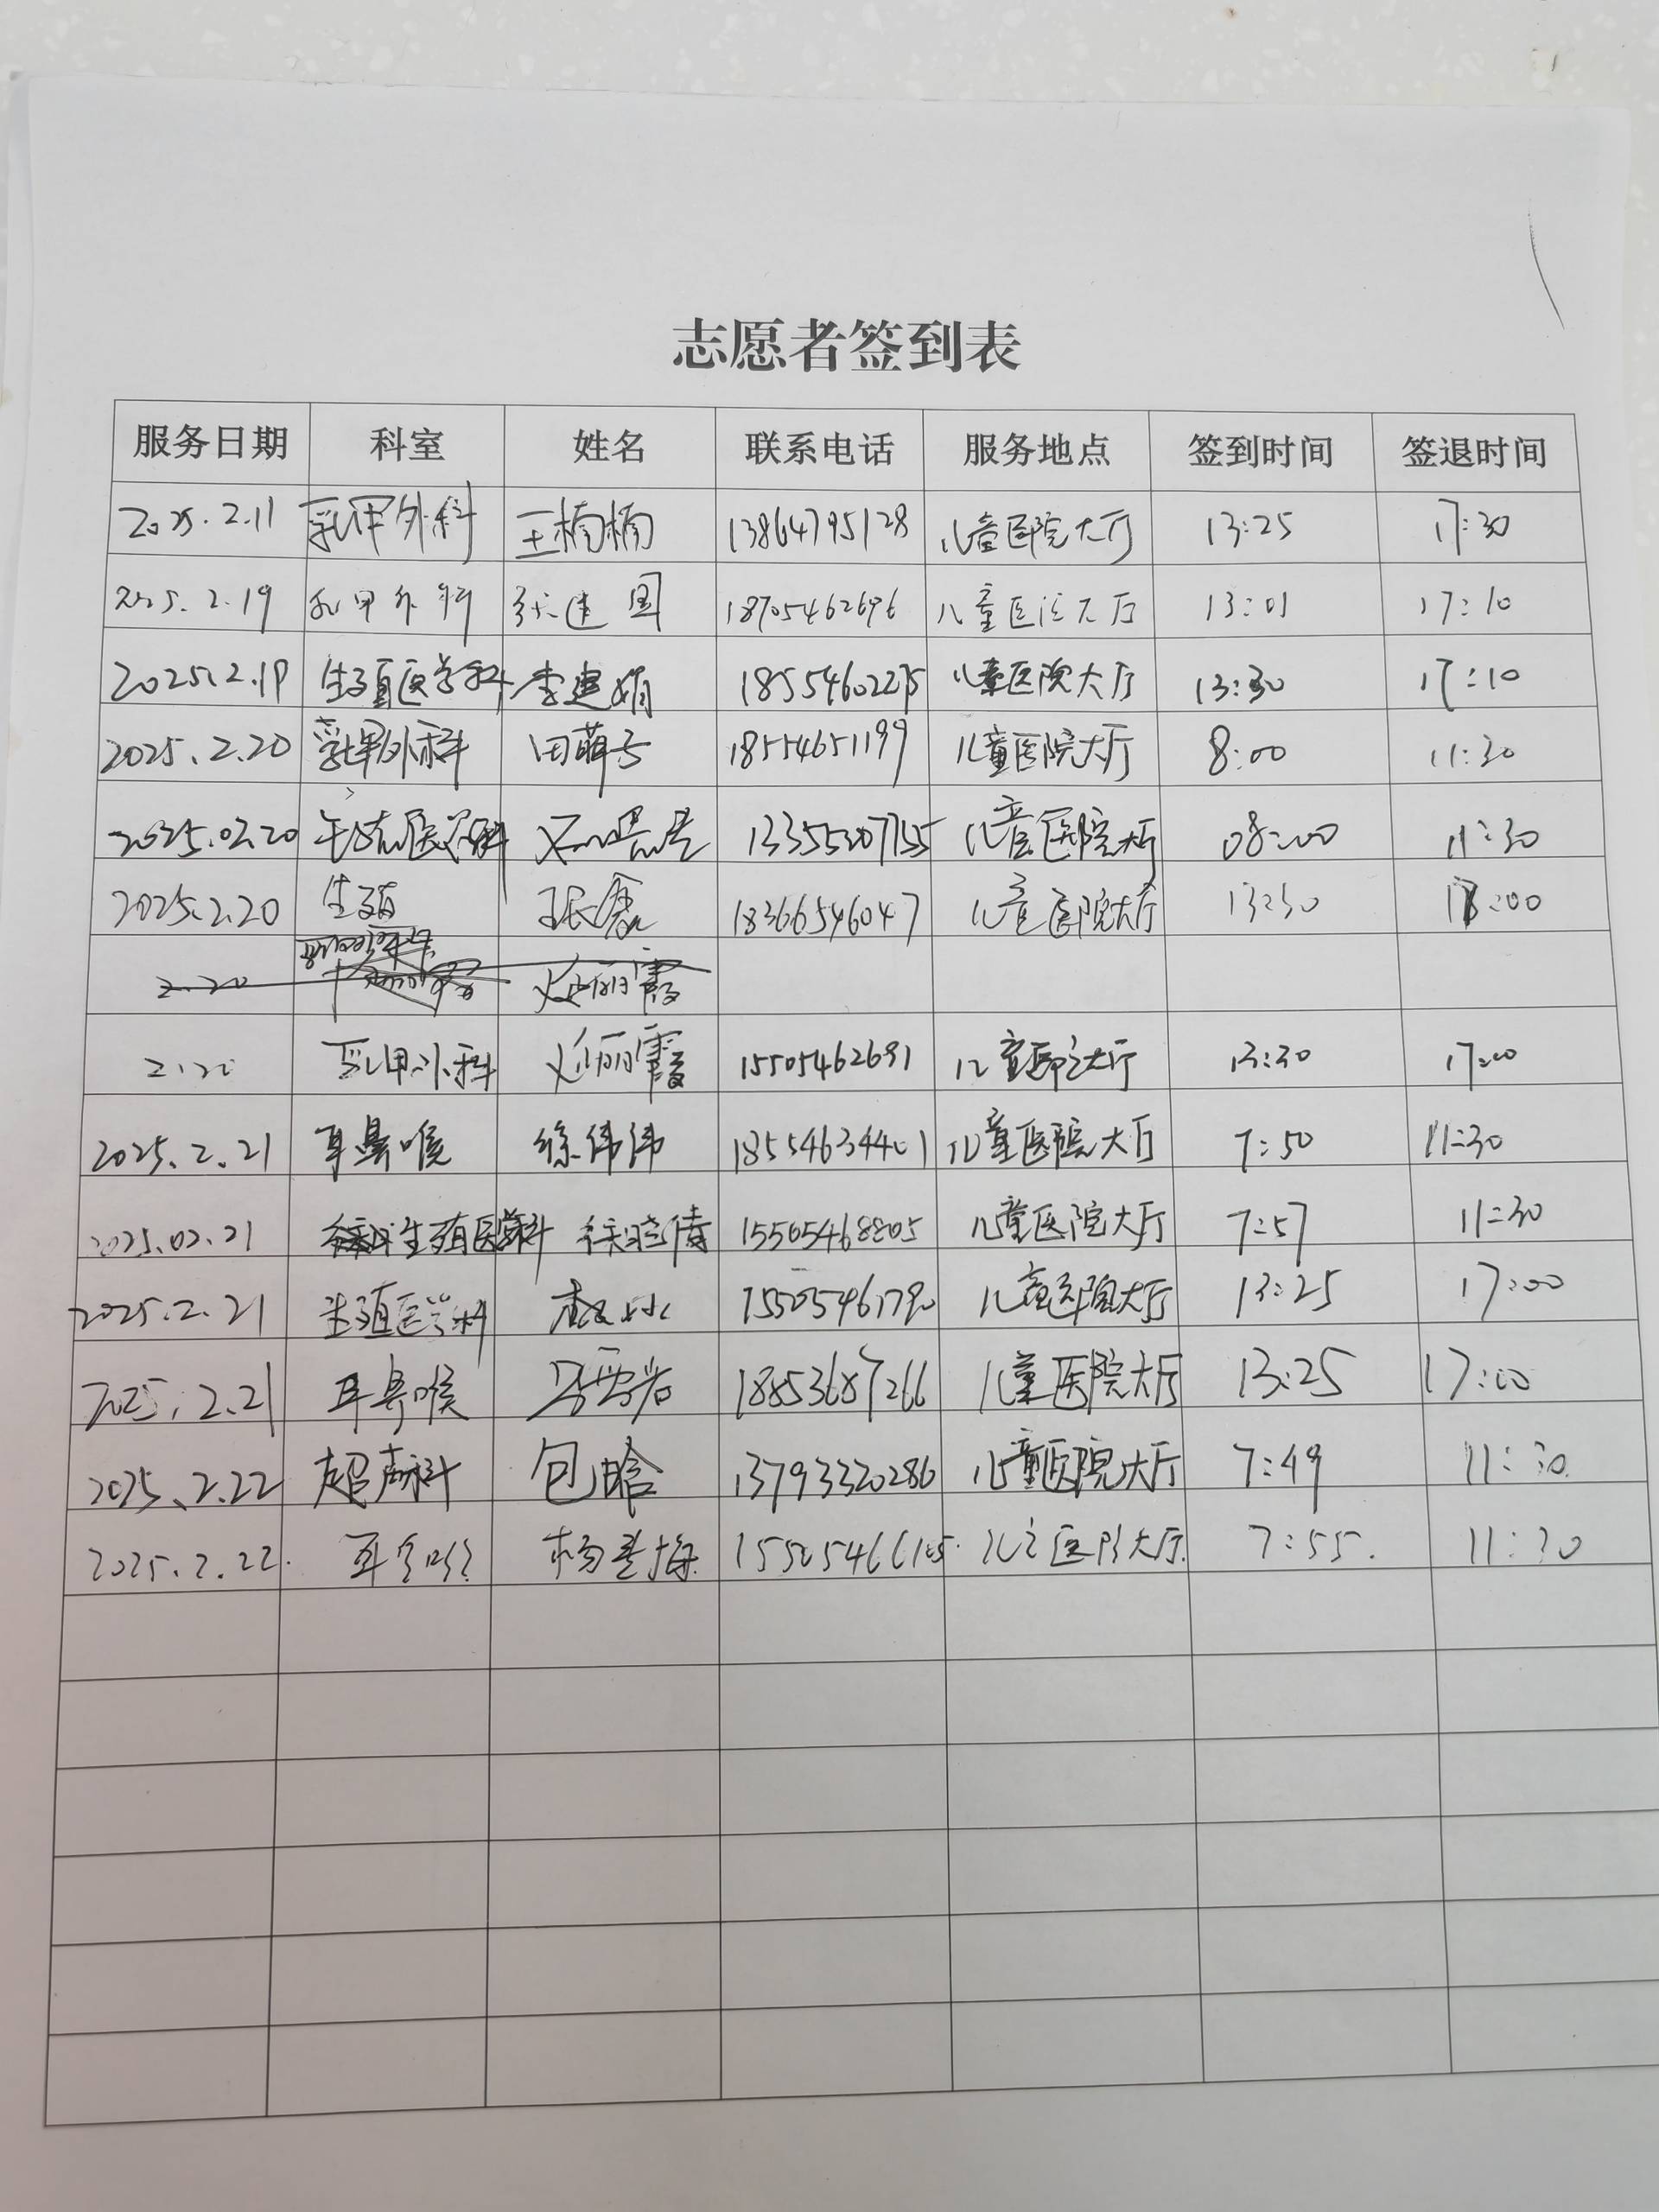 志愿者签到表
服务日期 科室 姓名 联系电话 服务地点 签到时间 签退时间
2025.2.11 乳甲外科 王楠楠 13864795128 儿童医院大厅 13:25 17:30
2025.2.19 乳甲外科 张建国 18705462696 儿童医院大厅 13:01 17:10
2025.2.19 生殖医学科 李建娟 18554602275 儿童医院大厅 13:30 17:10
2025.2.20 乳甲外科 田萌子 18554651199 儿童医院大厅 8:00 11:30
2025.02.20 13355207755 儿童医院大厅 08:00 11:30
2025.2.20 生殖 18366546047 儿童医院大厅 13:30 17:00
2.20 赵丽霞
2.20 乳甲外科 赵丽霞 15505462691 儿童医院大厅 13:30 17:00
2025.2.21 耳鼻喉 徐伟伟 18554634401 儿童医院大厅 7:50 11:30
2025.02.21 生殖医学科 徐晓倩 15505468805 儿童医院大厅 7:57 11:30
2025.2.21 生殖医学科 15505461790 儿童医院大厅 13:25 17:00
2025.2.21 耳鼻喉 18853687266 儿童医院大厅 13:25 17:00
2025.2.22 超声科 包晗 13793320286 儿童医院大厅 7:49 11:30
2025.2.22. 耳鼻喉 儿童医院大厅. 7:55. 11:30